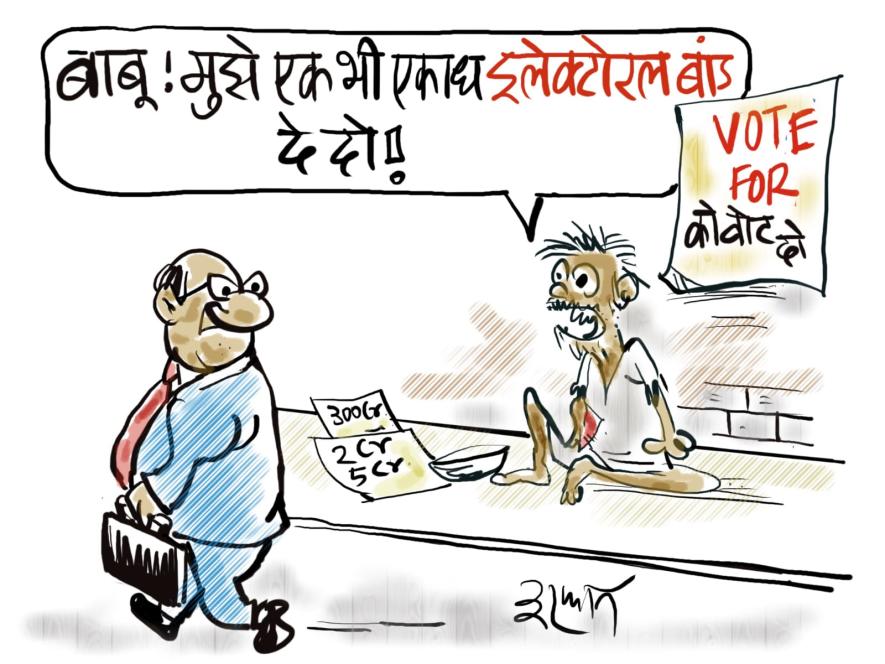 बाबू! मुझे एक भी एकाध इलेक्टोरल बांड
दे दो!!
VOTE
FOR
को वोट दो
300Cr.
2Cr
5Cr.
इरफान